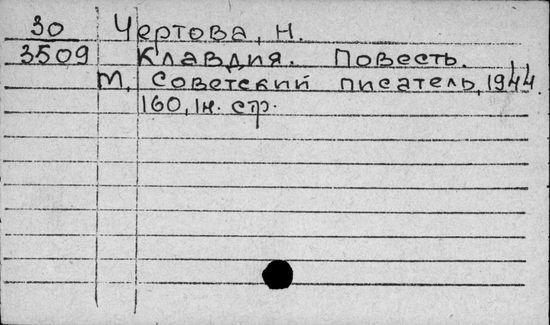 30 Чертова, Н.
3509 Клавдия. Повесть.
М. Советский писатель, 1944.
160, 1н. стр.